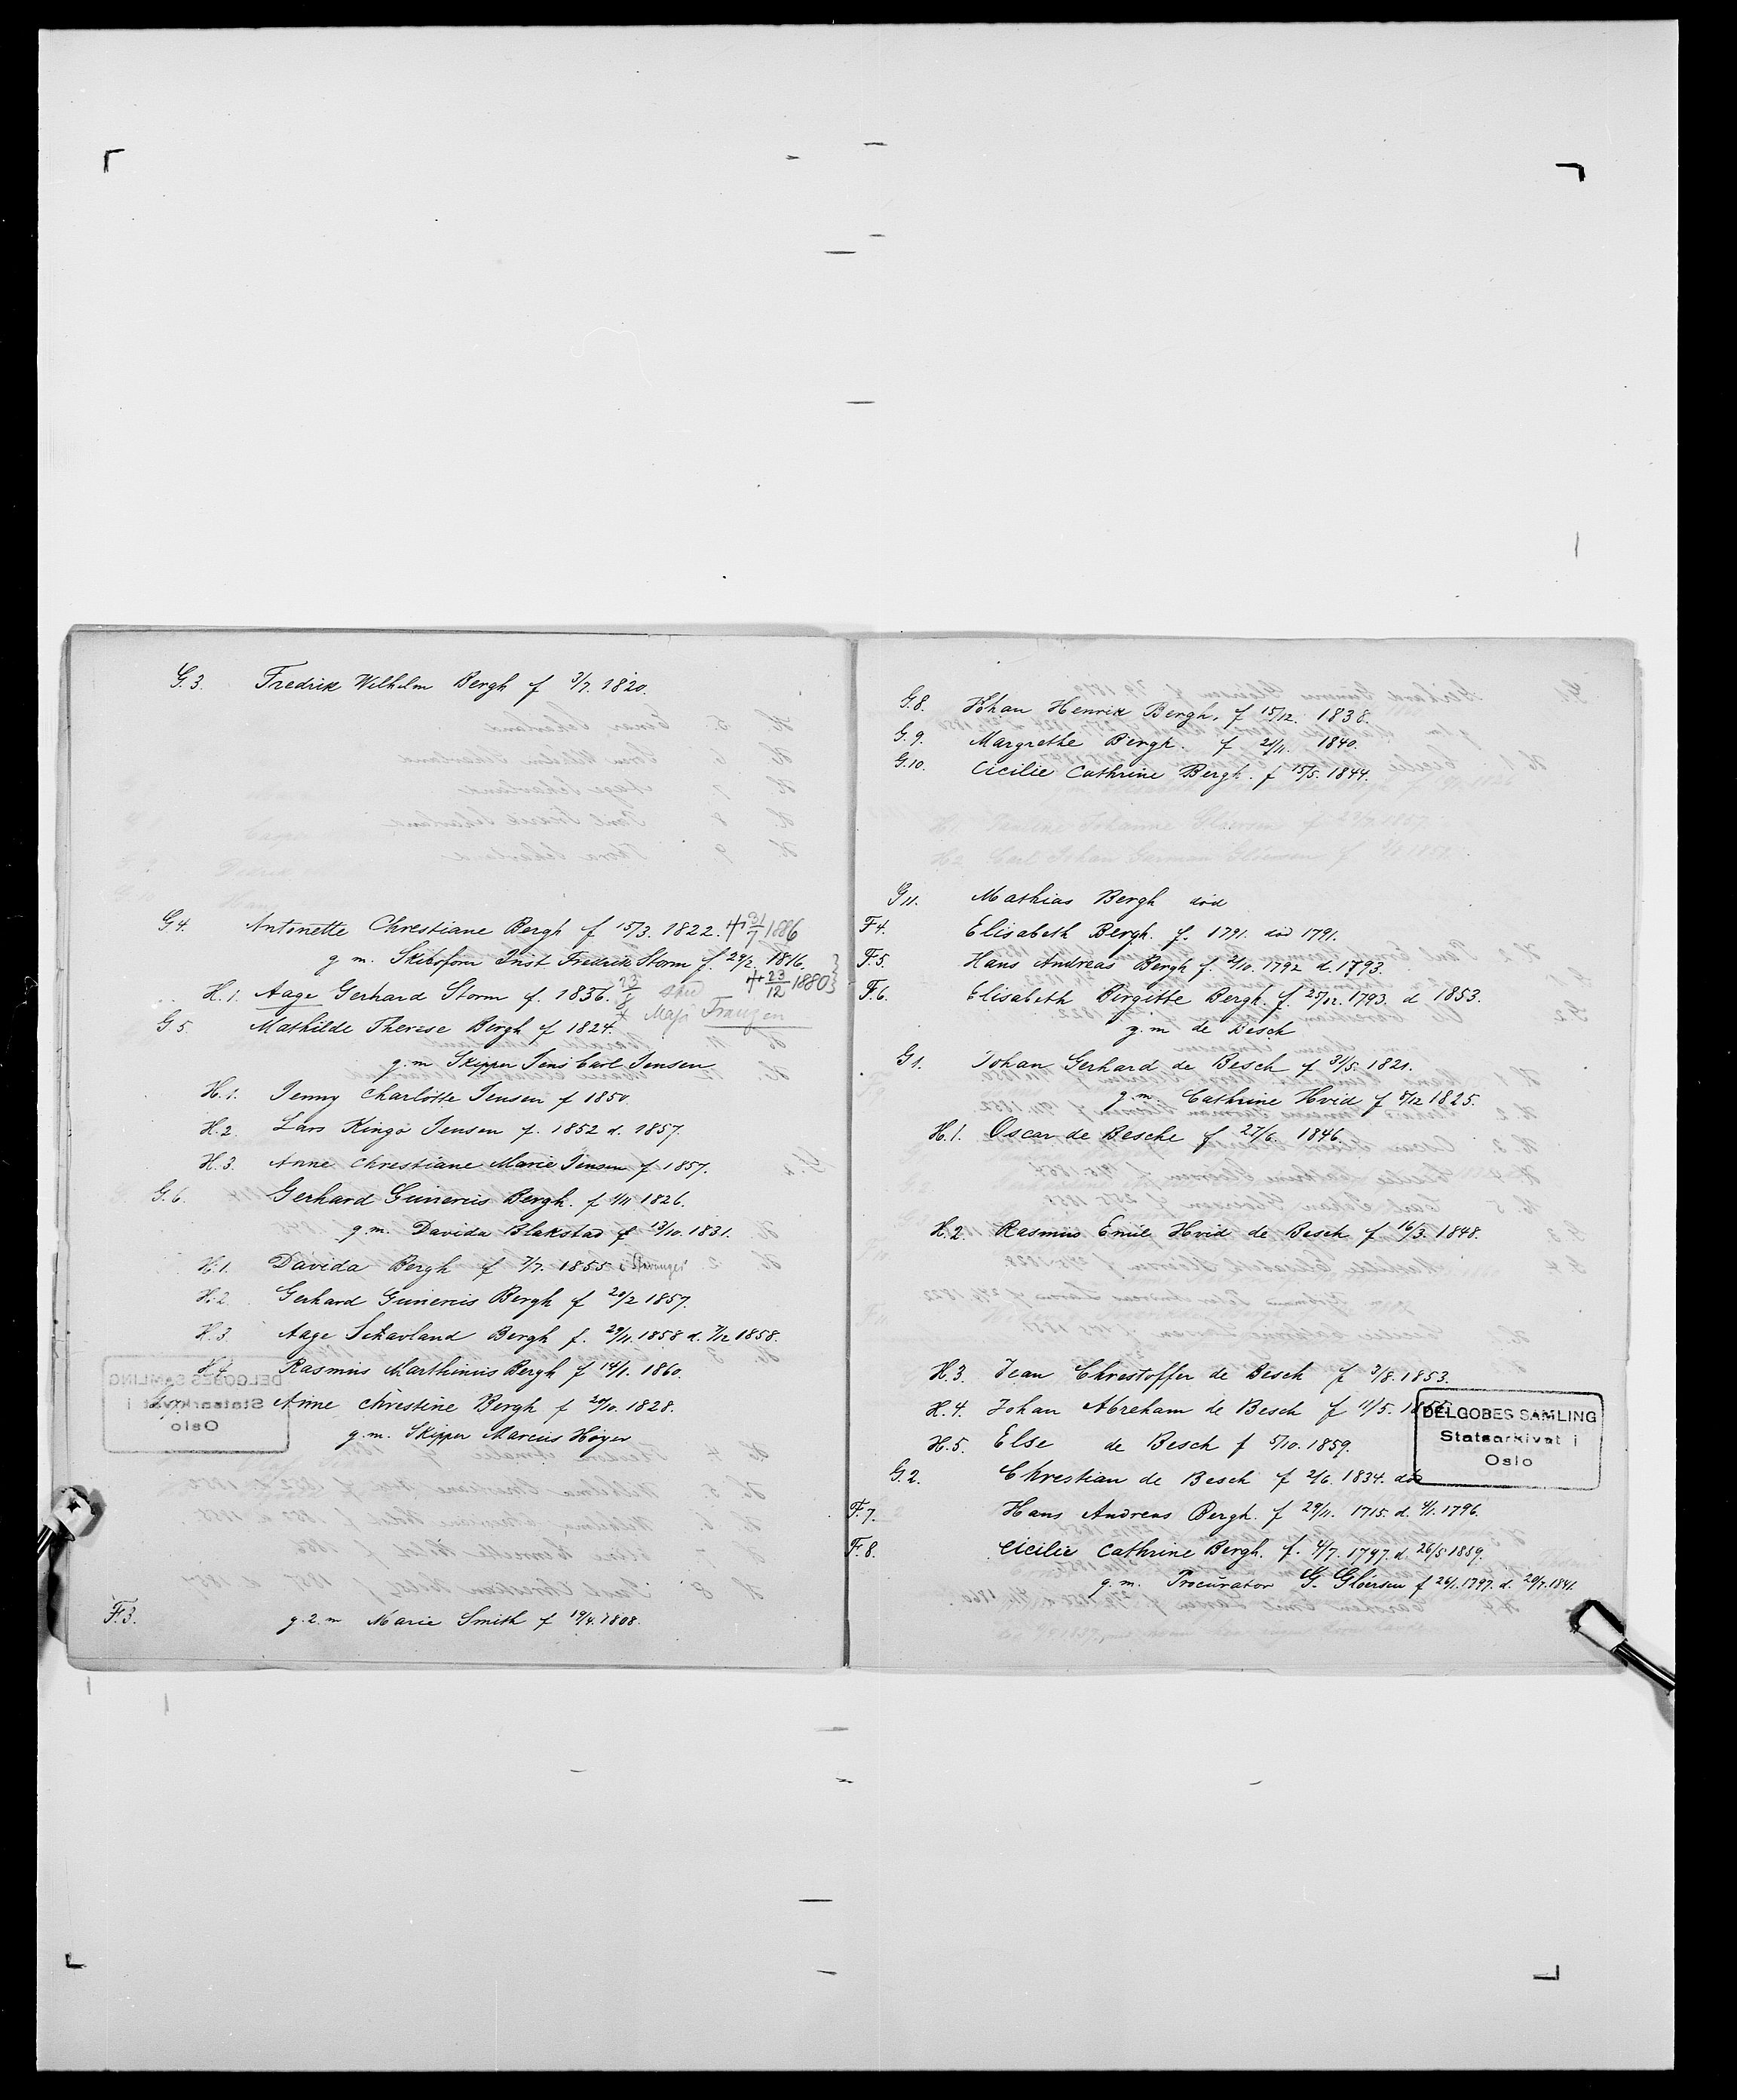 G. 3. Fredrik Wilhelm Bergh f 3/7. 1820.
G 4. Antonette Chrestiane Bergh f 15/3. 1822. + 31/7 1886
g m. Skibsform Inst Fredrik Storm f. 29/2. 1816.
+ 23/12 1880
H. 1. Aage Gerhard Storm f. 1856.
Maja Franzen
G 5. Mathilde Therese Bergh f 1824.
g. m Skipper Jens Carl Jensen
H. 1. Jenny Charlotte Jensen f 1850
H. 2. Lars Kingo Jensen f. 1852 d. 1857.
H. 3. Anne Chrestiane Marie Jensen f 1857.
G. 6. Gerhard Gunerius Bergh. f 1/11 1826.
g. m. Davida Blakstad f 13/10. 1831.
H. 1. Davida Bergh f 7/7. 1855 i
H. 2. Gerhard Gunerius Bergh f 20/2 1857.
H. 3 Aage Schavland Bergh f. 29/11. 1858 d. 7/12 1858.
H 4 Rasmus Marthinius Bergh f 14/1. 1860.
Anne Chrestine Bergh f 29/10. 1828.
g. m. Skipper Marcus Høyer
F. 3. g. 2. m Marie Smith f 19/4. 1808.
G. 8. Johan Henrik Bergh. f 15/12. 1838.
G. 9. Margrethe Bergh. f 21/11. 1840.
G. 10. Cicilie Cathrine Bergh. f 15/5. 1844.
G 11. Mathias Bergh død
F 4. Elisabeth Bergh. f. 1791. død 1791.
F. 5. Hans Andreas Bergh f. 2/10. 1792 d. 1793.
F. 6. Elisabeth Birgitte Bergh. f. 25/12. 1793. d 1853.
g. m de Besch
G 1. Johan Gerhard de Besch f 31/5. 1821.
g. m. Cathrine Hvid f 5/12 1825.
H. 1. Oscar de Besche f 27/6. 1846.
H. 2. Rasmus Emil Hvid de Besch f 16/3. 1848.
H. 3. Jean Chrestoffer de Besch f 3/8. 1853.
H. 4. Johan Abreham de Besch f 11/5.
H. 5. Else de Besch f 5/10. 1859.
G. 2. Chrestian de Besch f 2/6. 1834. død
F. 7. Hans Andreas Bergh. f 29/11. 1715. d. 4/1. 1796.
F. 8. Cicilie Cathrine Bergh. f. 4/7. 1797. d. 26/5 1889.
g. m. Procurator G. Gløersen f 26/1. 1797. d. 20/7. 1841.
DELGOBES SAMLING
Statsarkivet i
Oslo